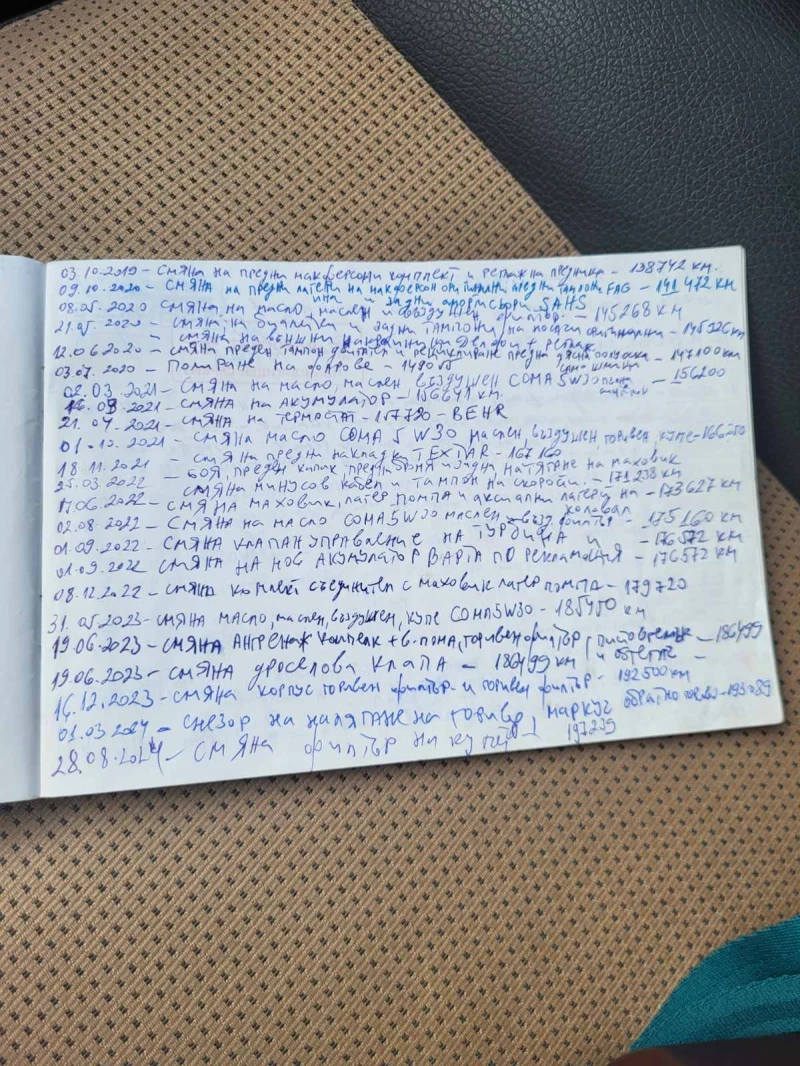 03.10.2019 - СМЯНА на предни макферсони комплект и реглаж на предница - 138742 км.
09.10.2020 - СМЯНА на предни лагери на макферсон оригинални предни тампони FAG - 141 472 КМ
и задни амортисьори SAHS
08.05.2020 СМЯНА на масло, маслен и въздушен филтър. - 145268 КМ
21.05.2020 - смяна на и задни тампони на носачи оригинални - 145 126 КМ
- смяна на външни накрайници 2 броя + реглаж
12.06.2020 - смяна преден тампон двигател и рециклиране предна дясна полуоска - 147100 КМ
само шмирка
03.07.2020 - Полиране на фарове - 148055
02.03 2021 - СМЯНА на масло, маслен въздушен COMA 5W30 - 156200
16.03.2021 - СМЯНА на АКУМУЛАТОР - 156641 км.
21.04.2021 - СМЯНА на ТЕРМОСТАТ - 157720 - BEHR
01.10.2021 - СМЯНА масло COMA 5 W30 маслен, въздушен, горивен, купе - 166250
18.11.2021 - СМЯНА предни накладки TEXTAR - 167160
25.03.2022 - БОЯ, преден капак, предна броня и задна, натягане на маховик
смяна минусов кабел и тампон на скорости. - 171238 КМ
17.06.2022 - СМЯНА маховик, лагер помпа и аксиални лагери на - 173627 КМ
коловал
02.08.2022 - СМЯНА на масло COMA 5W30 маслен - възд. филтър - 175160 КМ
01.09.2022 - СМЯНА КЛАПАН УПРАВЛЕНИЕ НА ТУРБИНА И - 176572 КМ
01.09.2022 СМЯНА НА НОВ АКУМУЛАТОР ВАРТА ПО РЕКЛАМАЦИЯ - 176572 КМ
08.12.2022 - СМЯНА комплект съединител с маховик лагер помпа - 179720
31.05.2023 - СМЯНА МАСЛО, маслен, въздушен, купе COMA 5W30 - 185450 КМ
19.06.2023 - СМЯНА АНГРЕНАЖ комплект + в. помпа, горивен филтър, пистов ремък - 186499
и обтегач -
19.06.2023 - СМЯНА дроселова КЛАПА - 186499 КМ
16.12.2023 - СМЯНА корпус горивен филтър и горивен филтър - 192500 КМ
01.03.2024 - снезор на налягане на гориво, маркуч обратно гориво - 193089
28.08.2024 - СМЯНА филтър на купе - 197239